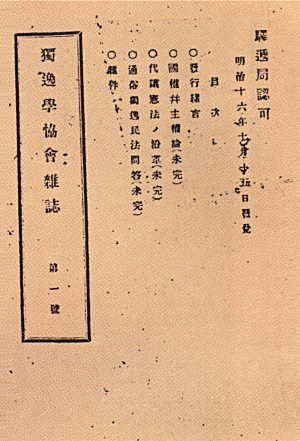 驛遞局認可
明治十六年十月十五日發兌
目次
○發行緒言
○國權幷主權論(未完)
○代議憲法ノ沿革(未完)
○通俗獨逸民法問答(未完)
○雜件
獨逸學協會雜誌 第一號